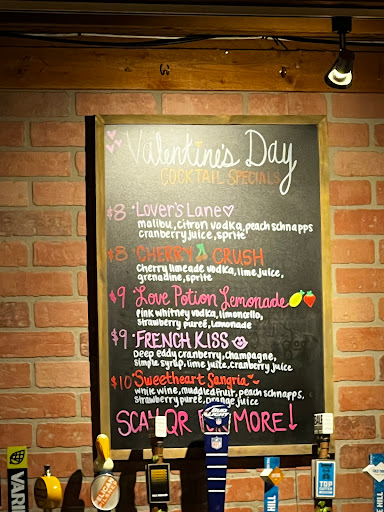 Valentine's Day
COCKTAIL SPECIALS
$8 · Lover's Lane
malibu, citron vodka, peach schnapps
cranberry juice, sprite
$8 · CHERRY CRUSH
cherry limeade vodka, lime juice,
grenadine, sprite
$9 · Love Potion Lemonade
pink whitney vodka, limoncello,
strawberry pureé, lemonade
$9 · FRENCH KISS
Deep eddy cranberry, champagne,
simple syrup, lime juice, cranberry juice
$10 · Sweetheart Sangria
white wine, muddled fruit, peach schnapps,
strawberry pureé, orange juice
SCAN QR MORE!
NFL
TOP
HILL